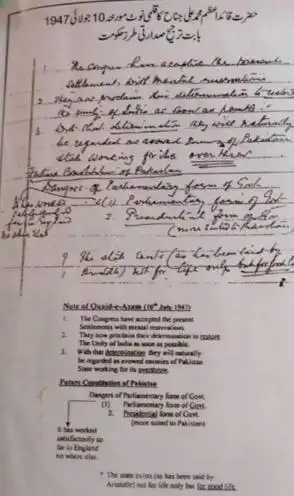 حضرت قائداعظم محمد علی جناح کا قلمی نوٹ مورخہ 10 جولائی 1947
بابت ترجیح صدارتی طرز حکومت
1. The Congress have accepted the present
Settlement, with mental reservations
2. They now proclaim their determination to restore
the unity of India as soon as possible.
3. With that determination they will naturally
be regarded as avowed enemies of Pakistan
State working for its overthrow.
Future Constitution of Pakistan
Dangers of Parliamentary form of Govt.
(1) Parliamentary form of Govt
2. Presidential form of Gov
(more suited to Pakistan)
It has worked
satisfactorily so
far in England
no where else
The state exists (as has been said by
Aristotle) not for life only but for good life
Note of Quaid-e-Azam (10th July 1947)
1. The Congress have accepted the present
Settlements with mental reservations.
2. They now proclaim their determination to restore
The Unity of India as soon as possible.
3. With that determination they will naturally
be regarded as avowed enemies of Pakistan
State working for its overthrow.
Future Constitution of Pakistan
Dangers of Parliamentary form of Govt.
(1) Parliamentary form of Govt.
2. Presidential form of Govt.
(more suited to Pakistan)
It has worked
satisfactorily so
far in England
no where else.
* The state exists (as has been said by
Aristotle) not for life only but for good life.